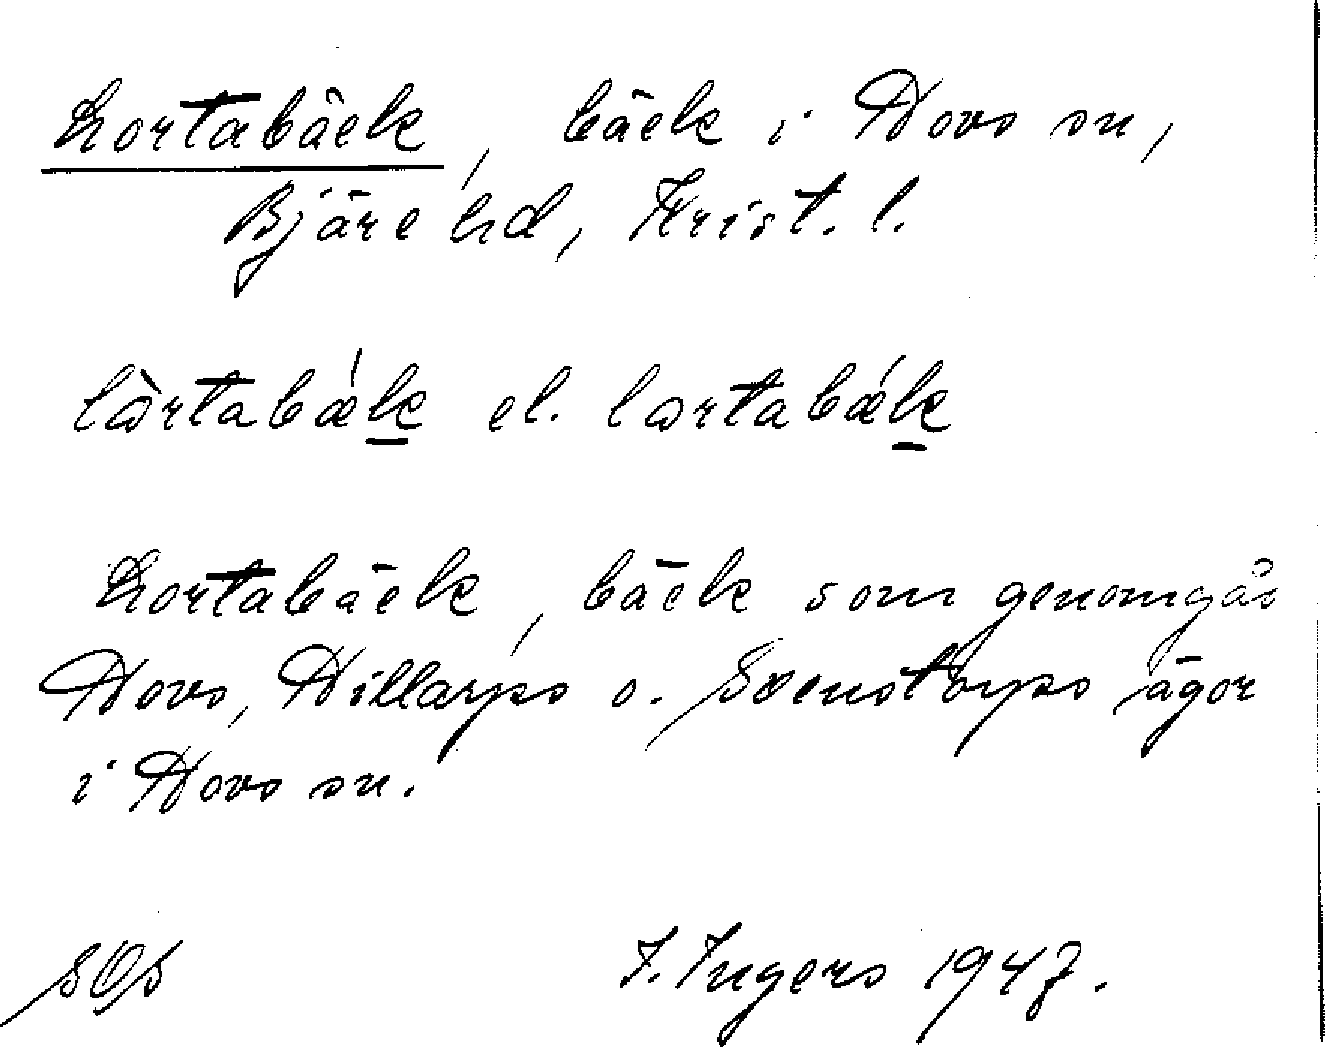 Lortabäck, bäck i Hovs sn,
Bjäre hd, Krist. l.
lòrtabǽk el. lortabǽk
Lortabäck, bäck som genomgår
Hovs, Hillarps o. Svenstorps ägor
i Hovs sn.
SOS I. Ingers 1947.